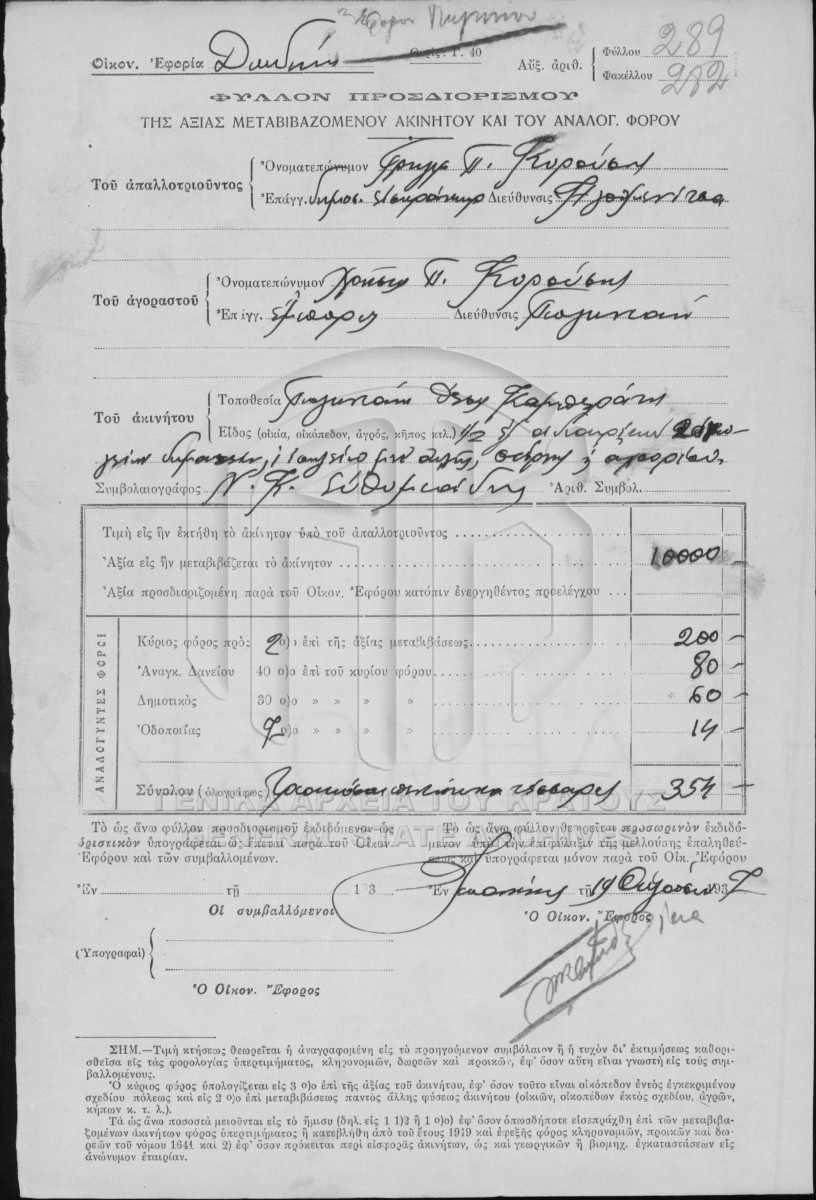 Οἰκον. Ἐφορία
Αὔξ. ἀριθ. Φύλλου 289
Φακέλλου 282
ΦΥΛΛΟΝ ΠΡΟΣΔΙΟΡΙΣΜΟΥ
ΤΗΣ ΑΞΙΑΣ ΜΕΤΑΒΙΒΑΖΟΜΕΝΟΥ ΑΚΙΝΗΤΟΥ ΚΑΙ ΤΟΥ ΑΝΑΛΟΓ. ΦΟΡΟΥ
Τοῦ ἀπαλλοτριοῦντος Ὀνοματεπώνυμον Π.
Ἐπάγγ. Διεύθυνσις
Τοῦ ἀγοραστοῦ Ὀνοματεπώνυμον Π.
Ἐπάγγ. Διεύθυνσις
Τοῦ ἀκινήτου Τοποθεσία
Εἶδος (οἰκία, οἰκόπεδον, ἀγρός, κῆπος κτλ.) 1/2 ἐξ ἀδιαιρέτου
Συμβολαιογράφος Ν. Κ. Εὐθυμιάδης Ἀριθ. Συμβολ.
Τιμὴ εἰς ἣν ἐκτήθη τὸ ἀκίνητον ὑπὸ τοῦ ἀπαλλοτριοῦντος
Ἀξία εἰς ἣν μεταβιβάζεται τὸ ἀκίνητον 10000
Ἀξία προσδιοριζομένη παρὰ τοῦ Οἰκον. Ἐφόρου κατόπιν ἐνεργηθέντος προελέγχου
ΑΝΑΛΟΓΟΥΝΤΕΣ ΦΟΡΟΙ
Κύριος φόρος πρὸς 2 ο)ο ἐπὶ τῆς ἀξίας μεταβιβάσεως 200 —
Ἀναγκ. Δανείου 40 ο)ο ἐπὶ τοῦ κυρίου φόρου 80 —
Δημοτικὸς 30 ο)ο » » » » 60 —
Ὁδοποιΐας 7 ο)ο » » » » 14 —
Σύνολον (ὁλογράφως) Τριακόσιαι πεντήκοντα τέσσαρες 354 —
ΓΕΝΙΚΑ ΑΡΧΕΙΑ ΤΟΥ ΚΡΑΤΟΥΣ
GENERAL STATE ARCHIVES
Τὸ ὡς ἄνω φύλλον προσδιορισμοῦ ἐκδιδόμενον ὡς
ὁριστικὸν ὑπογράφεται ὡς ἕπεται παρὰ τοῦ Οἰκον.
Ἐφόρου καὶ τῶν συμβαλλομένων.
Ἐν τῇ 193
Οἱ συμβαλλόμενοι
(Ὑπογραφαὶ)
Ὁ Οἰκον. Ἔφορος
Τὸ ὡς ἄνω φύλλον θεωρεῖται προσωρινὸν ἐκδιδό-
μενον ὑπὸ τὴν ἐπιφύλαξιν τῆς μελλούσης ἐπαληθεύ-
σεως καὶ ὑπογράφεται μόνον παρὰ τοῦ Οἰκ. Ἐφόρου
Ἐν τῇ 19 193 7
Ὁ Οἰκον. Ἔφορος
ΣΗΜ.—Τιμὴ κτήσεως θεωρεῖται ἡ ἀναγραφομένη εἰς τὸ προηγούμενον συμβόλαιον ἢ ἡ τυχὸν δι' ἐκτιμήσεως καθορι-
σθεῖσα εἰς τὰς φορολογίας ὑπερτιμήματος, κληρονομιῶν, δωρεῶν καὶ προικῶν, ἐφ' ὅσον αὕτη εἶναι γνωστὴ εἰς τοὺς συμ-
βαλλομένους.
Ὁ κύριος φόρος ὑπολογίζεται εἰς 3 ο)ο ἐπὶ τῆς ἀξίας τοῦ ἀκινήτου, ἐφ' ὅσον τοῦτο εἶναι οἰκόπεδον ἐντὸς ἐγκεκριμένου
σχεδίου πόλεως καὶ εἰς 2 ο)ο ἐπὶ μεταβιβάσεως παντὸς ἄλλης φύσεως ἀκινήτου (οἰκιῶν, οἰκοπέδων ἐκτὸς σχεδίου, ἀγρῶν,
κήπων κ. τ. λ.).
Τὰ ὡς ἄνω ποσοστὰ μειοῦνται εἰς τὸ ἥμισυ (δηλ. εἰς 1 1)2 ἢ 1 ο)ο) ἐφ' ὅσον ὁπωσδήποτε εἰσεπράχθη ἐπὶ τῶν μεταβιβα-
ζομένων ἀκινήτων φόρος ὑπερτιμήματος ἢ κατεβλήθη ἀπὸ τοῦ ἔτους 1919 καὶ ἐφεξῆς φόρος κληρονομιῶν, προικῶν καὶ δω-
ρεῶν τοῦ νόμου 1641 καὶ 2) ἐφ' ὅσον πρόκειται περὶ εἰσφορᾶς ἀκινήτων, ὡς καὶ γεωργικῶν ἢ βιομηχ. ἐγκαταστάσεων εἰς
ἀνώνυμον ἑταιρίαν.